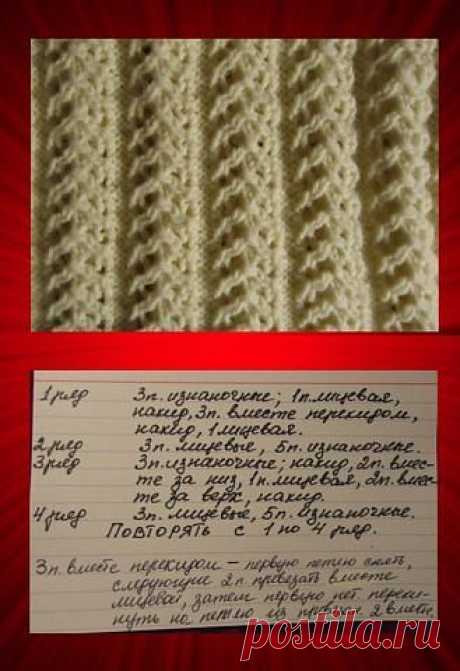 1 ряд 3п. изнаночные; 1п. лицевая,
накид, 3п. вместе перекидом,
накид, 1 лицевая.
2 ряд 3п. лицевые, 5п. изнаночные.
3 ряд 3п. изнаночные; накид, 2п. вмес-
те за низ, 1п. лицевая, 2п. вмес-
те за верх, накид.
4 ряд 3п. лицевые, 5п. изнаночные.
Повторять с 1 по 4 ряд.
3п. вместе перекидом – первую петлю снять,
следующие 2п. провязать вместе
лицевой, затем первую пет. переки-
нуть на петлю из 2 вмест.
postila.ru